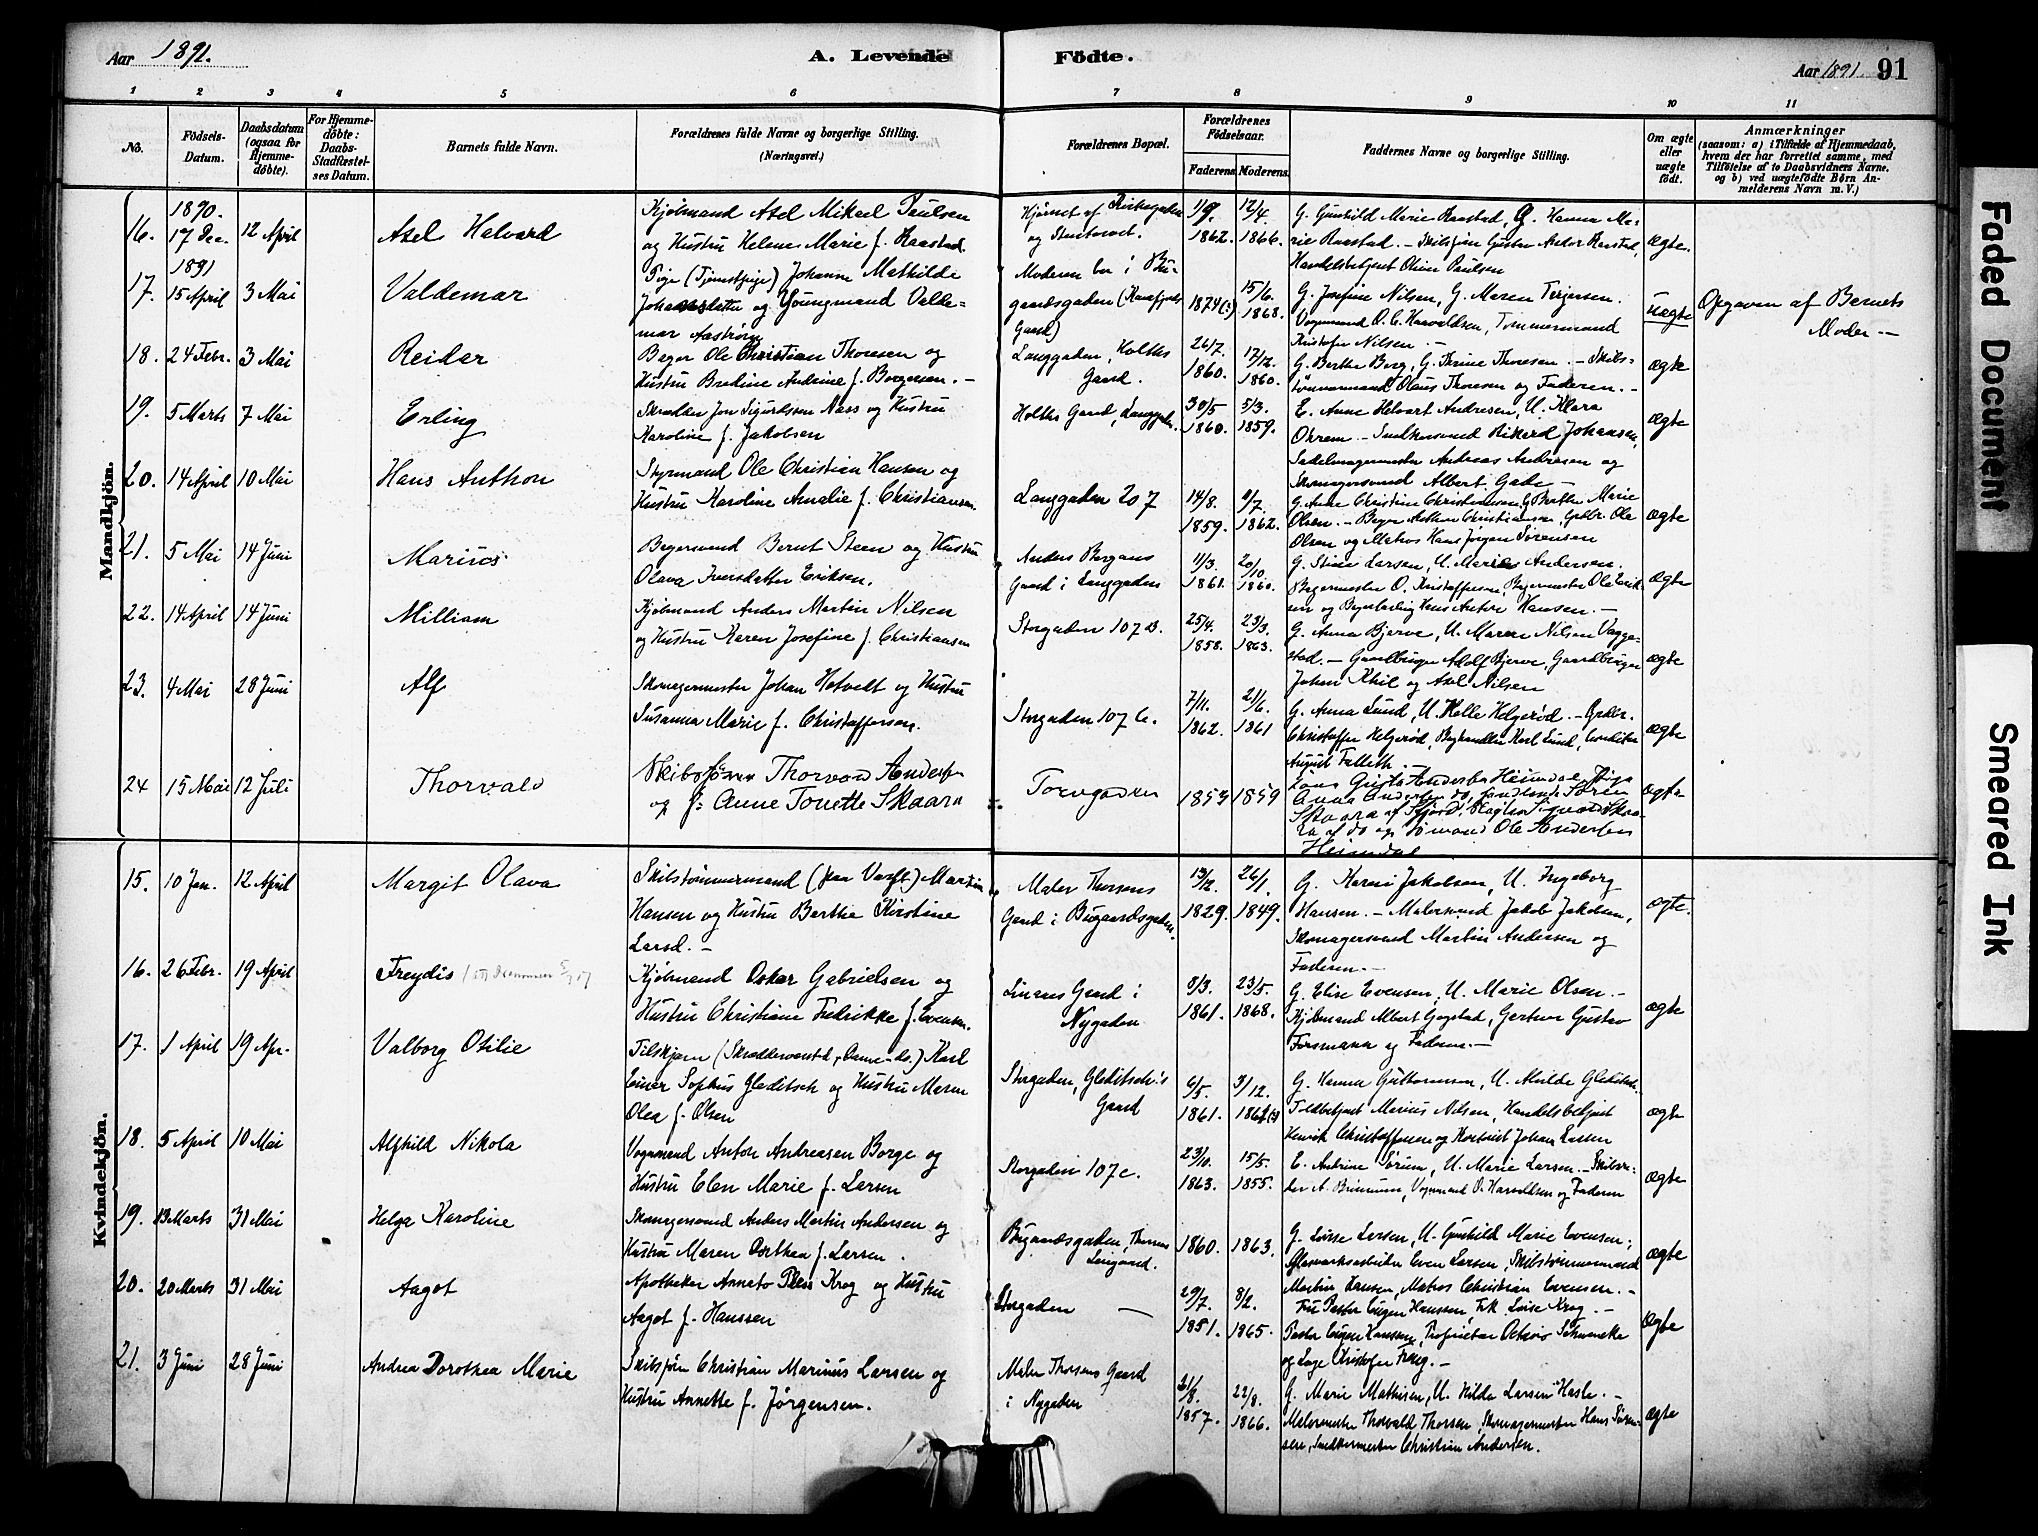 Aar 1891.
A. Levende Födte.
Aar 1891 91
1 2 3 4 5 6 7 8 9 10 11
No.
Födsels-
Datum.
Daabsdatum
(ogsaa for
Hjemme-
döbte).
For Hjemme-
döbte:
Daabs-
Stadfæstel-
ses Datum.
Barnets fulde Navn.
Forældrenes fulde Navne og borgerlige Stilling.
(Næringsvei.)
Forældrenes Bopæl.
Forældrenes
Födselsaar.
Faderens Moderens.
Faddernes Navne og borgerlige Stilling.
Om ægte
eller
uægte
födt.
Anmærkninger
(saasom: a) i Tilfælde af Hjemmedaab,
hvem der har forrettet samme, med
Tilföielse af to Daabsvidners Navne.
og b) ved uægtefödte Börn An-
melderens Navn m. V.)
Mandkjön.
16. 1890. 17 Dec. 12 April
Axel Halvard
Kjøbmand Axel Mikael Paulsen
og Hustru Helene Marie f. Raastad.
Hjørnet af Kirkegaden
og Stortorvet.
11/9. 1862. 12/4. 1866.
G. Gunhild Marie Raastad, G. Hanna Ma-
rie Raastad. – Skibsfører Gustav Andor Raastad,
Handelsbetjent Oluve Paulsen
ægte.
17. 1891 15 April 3 Mai
Valdemar
Pige (Tjenestpige) Johanne Mathilde
Johannsdatter og Youngmand Valde-
mar Aastrøm
Moderen bor i Bu-
gaardsgaden
Gaard)
1874(?) 15/6. 1868.
G. Josefine Nilsen, G. Maren Terjersen.
Vognmand O. C. Haraldsen, Tømmermand
Kristofer Nilsen –
uægte
Opgaven af Barnets
Moder –
18. 24 Febr. 3 Mai
Reidar
Bager Ole Christian Thoresen og
Hustru Bredine Andrine f. Borgersen. –
Langgaden, Holths
Gaard.
26/7. 1860. 17/12. 1860.
G. Berthe Borg, G. Thrine Thoresen – Skibs-
tømmermand Olaus Thoresen og Faderen. –
ægte
19. 5 Marts 7 Mai
Erling
Skrædder Jon Sigurdssen Næss og Hustru
Karoline f. Jakobsen
Holths Gaard, Langgden.
30/5 1860. 5/3. 1859.
E. Anne Helvart Andresen, U. Klara
Ohrem – Snedkersvend Rikard Johansen,
Sadelmagermester Andreas Andresen og
Skomagersvend Albert Gade –
ægte
20. 14 April 10 Mai
Hans Anthon
Styrmand Ole Christian Hansen og
Hustru Karoline Amalie f. Christiansen
Langgaden 207
14/8. 1859. 9/7. 1862.
G. Anne Christine Christiansen, G. Berthe Marie
Olsen. – Bager Anthon Christiansen, Grdbr. Ole
Olsen og Matros Hans Jørgen Sørensen
ægte
21. 5 Mai 14 Juni
Marius
Bagersvend Bernt Steen og Hustru
Olava Iversdatter Eriksen.
Anders Bergans
Gaard i Langgaden
11/3. 1861. 20/10. 1860.
G. Stine Larsen, U. Marie Andersen.
Bagermester O. Kristoffersen, Bagermester Ole Erik-
sen og Bagerlærling Hans Anton Hansen. –
ægte
22. 14 April 14 Juni
William
Kjøbmand Anders Martin Nilsen
og Hustru Karen Josefine f. Christiansen
Storgaden 107 B.
25/4. 1858. 23/3. 1863.
G. Anna Bjerve, U. Maren Nilsen Vagge-
stad. – Gaardbruger Adolf Bjerve, Gaardbruger
Johan Khil og Axel Nilsen
ægte
23. 4 Mai 28 Juni
Alf
Skomagermester Johan Hotvedt og Hustru
Susanna Marie f. Christoffersen.
Storgaden 107 C.
7/11. 1862. 21/6. 1861
G. Anna Lund, U. Helle Helgerød. – Grdbr.
Christoffer Helgerød, Boghandler Karl Lund, Conditor
August Falleth –
ægte
24 15 Mai 12 Juli
Thorvald
Skibsfører Thorvald Anders.
og f: Anne Tonette Skaara
Torvgaden
1859 1859
Anna Andersen do,
Skaara af Fjord,
ra af do og Sømand Ole Andersen
Heimdal
ægte
Kvindekjön.
15. 10 Jan. 12 April
Margit Olava
Skibstømmermand (paa Værft.) Martin
Hansen og Hustru Berthe Kirstine
Larsd. –
Maler Thorsens
Gaard i Bugaardsgaden.
13/12. 1829. 26/1. 1849.
G. Karen Jakobsen, U. Ingeborg
Hansen. – Malersvend Jakob Jakobsen,
Skomagersvend Martin Andersen og
Faderen. –
ægte.
16. 26 Febr. 19 April
Freydis
Kjøbmand Oskar Gabrielsen og
Hustru Christiane Fredrikke f. Evensen.
Linaas Gaard i
Nygaden
8/3. 1861. 23/5. 1868.
G. Elise Evensen, U. Marie Olsen. –
Kjøbmand Albert Gogstad, Gartner Gustav
Forsmann og Faderen. –
ægte
17. 1 April 19 Apr.
Valborg Otilie
Tilskjærer (Skræddersvend, Dame-do.) Karl
Einar Sophus Gleditsch og Hustru Maren
Olea f. Olsen
Storgaden, Gleditsch's
Gaard
6/5. 1861. 3/12. 1864(?)
G. Hanna Guttormsen, U. Milde Gleditsch
Toldbetjent Marius Nilsen, Handelsbetjent
Henrik Christoffersen og Kontorist Johan Larsen
ægte
18. 5 April 10 Mai
Alfhild Nikola
Vognmand Anton Andreasen Borge og
Hustru Elen Marie f. Larsen
Storgaden 107 c.
23/10. 1863. 15/5. 1855.
E. Andrine Sørum, U. Marie Larsen – Skibsre-
der A. Brunum, Vognmand O. Haraldsen og Faderen
ægte
19. 13 Marts 31 Mai
Helga Karoline
Skomagersvend Anders Martin Andersen og
Hustru Maren Dorthea f. Larsen.
Bugaardsgaden, Thorsens
1860. 1863.
G. Lovise Larsen, U. Gunhild Marie Evensen;
Glasværksarbeider Even Larsen, Skibstømmermand
Martin Hansen, Matros Christian Evensen. –
ægte
20. 20 Marts 31 Mai
Aagot
Apotheker Anneto Pless Krog og Hustru
Aagot f. Hanssen
Storgaden –
29/7. 1851. 8/2. 1865.
Fru Pastor Eugen Hanssen, Frk Lovise Krog. –
Pastor Eugen Hanssen, Proprietær Octavio Schwencke
og Læge Kristofer Krog. –
ægte
21. 3 Juni 28 Juni
Andrea Dorothea Marie
Skibsfører Christian Marinus Larsen og
Hustru Annette f. Jørgensen.
Maler Thorsens Gaard
i Nygaden
21/8. 1857. 22/8. 1866.
G. Marie Mathisen, U. Hilda Larsen Hasle. –
Malermester Thorvald Thorsen, Skomagermester Hans Søren-
sen, Snedkermester Christian Andersen.
ægte
Faded Document
Smeared Ink